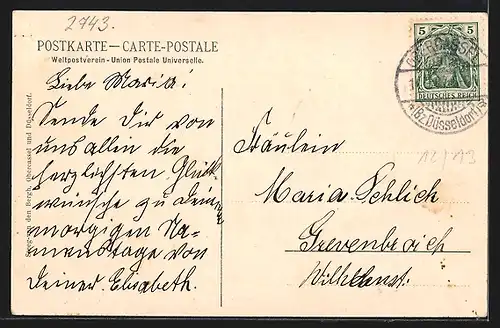 2743.
POSTKARTE—CARTE-POSTALE
Weltpostverein - Union Postale Universelle.
Liebe Maria!
Sende Dir von
uns allen die
herzlichsten Glück-
wünsche zu Deinem
morgigen Na-
menstage von
Deiner Elisabeth.
den Bergh, Obercassel und Düsseldorf.
5 5
DEUTSCHES REICH
OBERCASSEL
(Bz. Düsseldorf)
12/113
Fräulein
Maria Schlich
Grevenbroich
Wilhelmst.